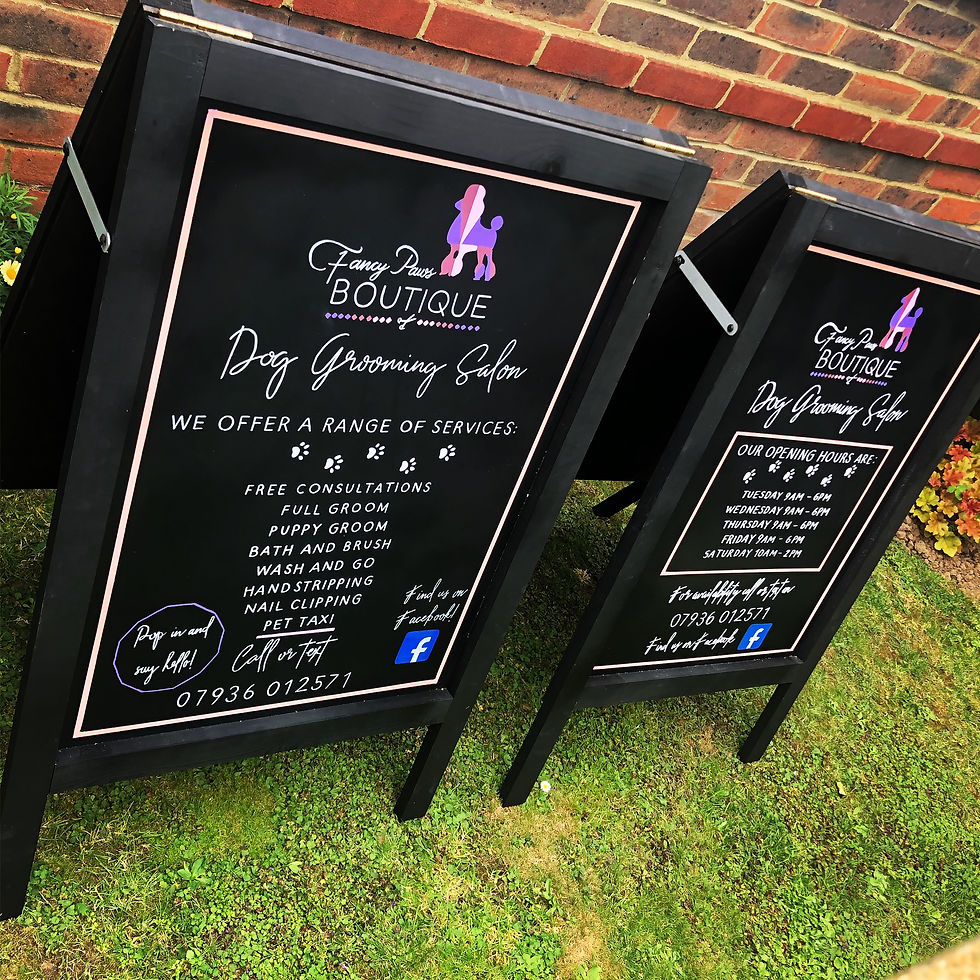 Fancy Paws
BOUTIQUE
of
Dog Grooming Salon
WE OFFER A RANGE OF SERVICES:
FREE CONSULTATIONS
FULL GROOM
PUPPY GROOM
BATH AND BRUSH
WASH AND GO
HANDSTRIPPING
NAIL CLIPPING
PET TAXI
Find us on
Facebook!
f
Pop in and
say hello!
Call or Text
07936 012571
Fancy Paws
BOUTIQUE
of
Dog Grooming Salon
OUR OPENING HOURS ARE:
TUESDAY 9AM - 6PM
WEDNESDAY 9AM - 6PM
THURSDAY 9AM - 6PM
FRIDAY 9AM - 6PM
SATURDAY 10AM - 2PM
For availability call or text on
07936 012571
Find us on Facebook
f